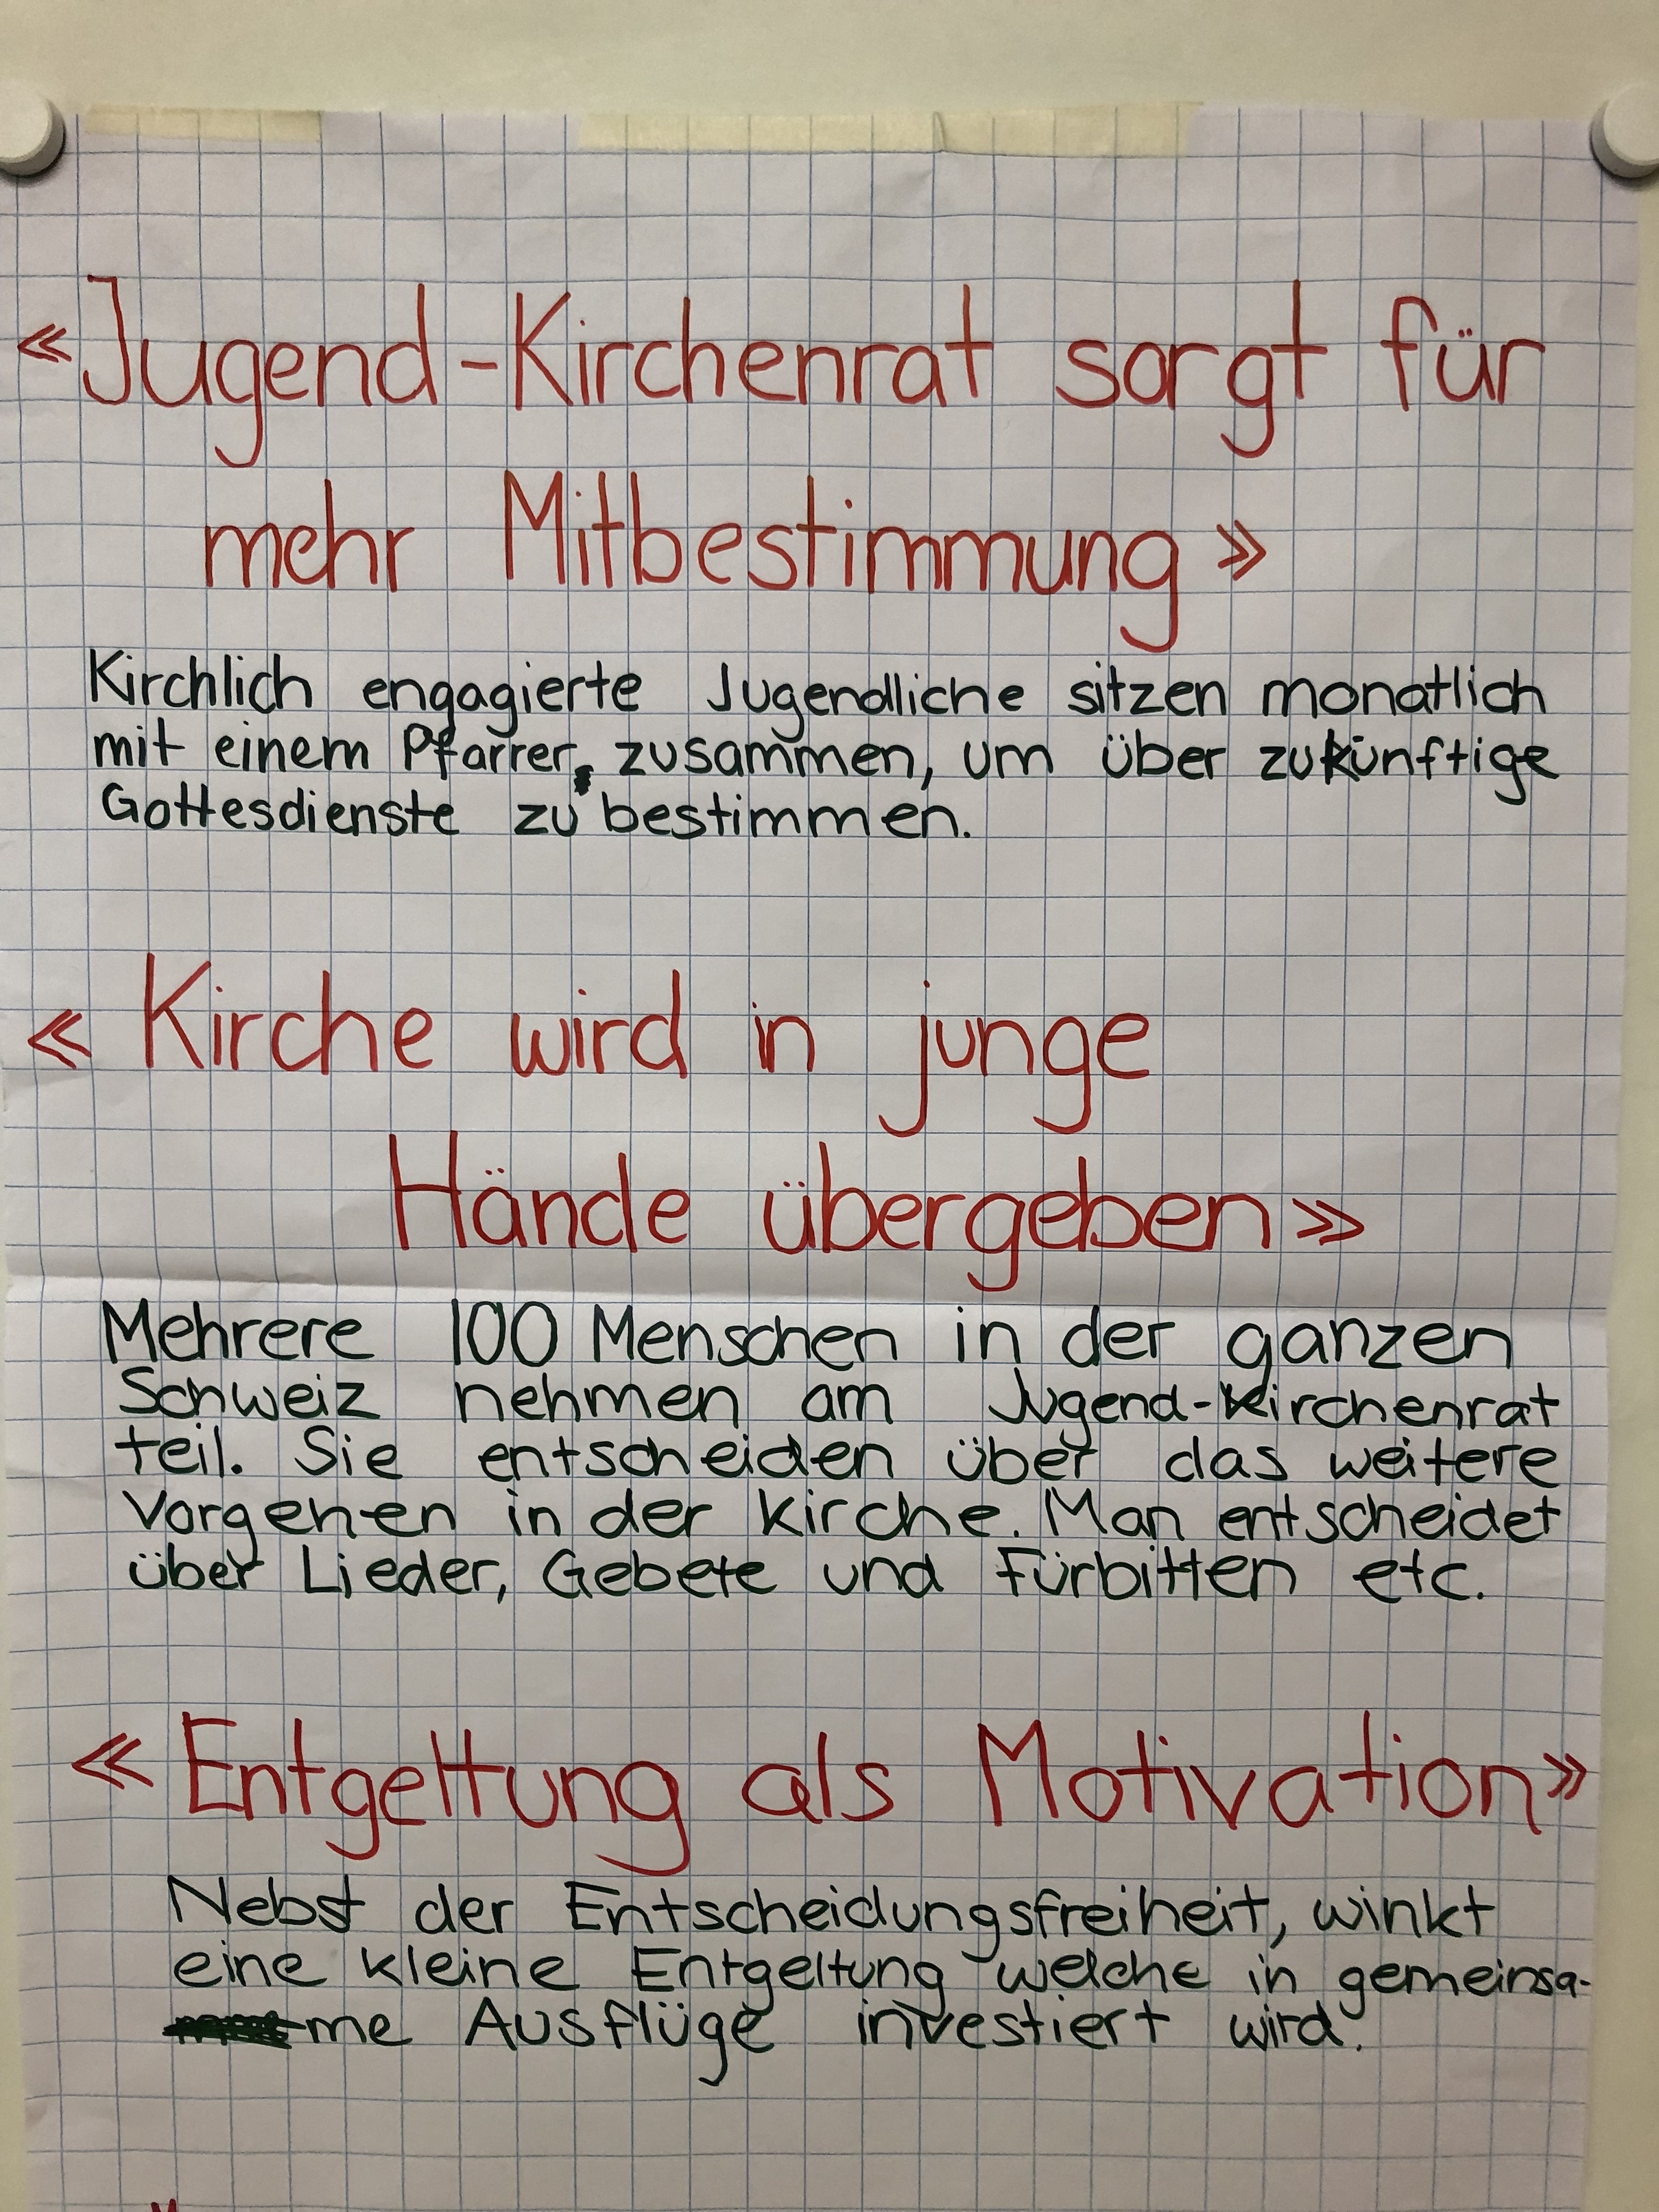 «Jugend-Kirchenrat sorgt für
mehr Mitbestimmung»
Kirchlich engagierte Jugendliche sitzen monatlich
mit einem Pfarrer, zusammen, um über zukünftige
Gottesdienste zu bestimmen.
«Kirche wird in junge
Hände übergeben»
Mehrere 100 Menschen in der ganzen
Schweiz nehmen am Jugend-Kirchenrat
teil. Sie entscheiden über das weitere
Vorgehen in der Kirche. Man entscheidet
über Lieder, Gebete und Fürbitten etc.
«Entgeltung als Motivation»
Nebst der Entscheidungsfreiheit, winkt
eine kleine Entgeltung welche in gemeinsa-
me Ausflüge investiert wird.